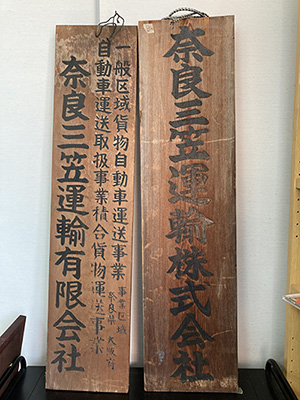 奈良三笠運輸株式会社
一般区域貨物自動車運送事業 事業区域
自動車運送取扱事業積合貨物運送事業 奈良県 大阪府
奈良三笠運輸有限会社